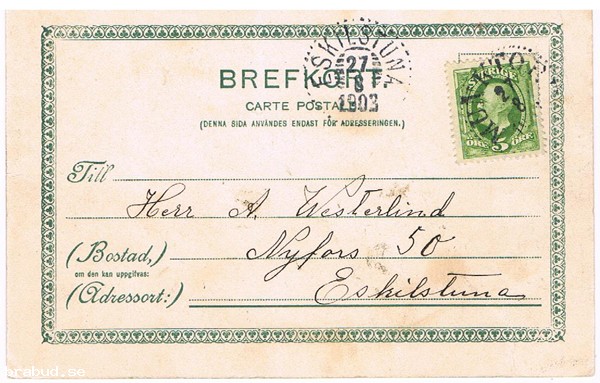 BREFKORT.
CARTE POSTALE
(DENNA SIDA ANVÄNDES ENDAST FÖR ADRESSERINGEN.)
ESKILSTUNA
27
8
1903
SVERIGE
5 ÖRE
Till
Herr A. Westerlind
(Bostad,)
om den kan uppgifvas:
Nyfors 50
(Adressort:)
Eskilstuna
prabud.se